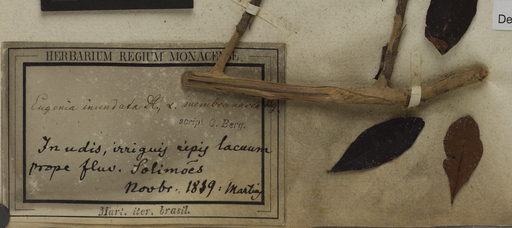 De
HERBARIUM REGIUM MONACENSE.
Eugenia inundata
scrips. O. Berg.
In udis, irriguis ripis lacuum
prope fluv. Solimões
Novbr. 1819. Martius
Mart. iter. brasil.